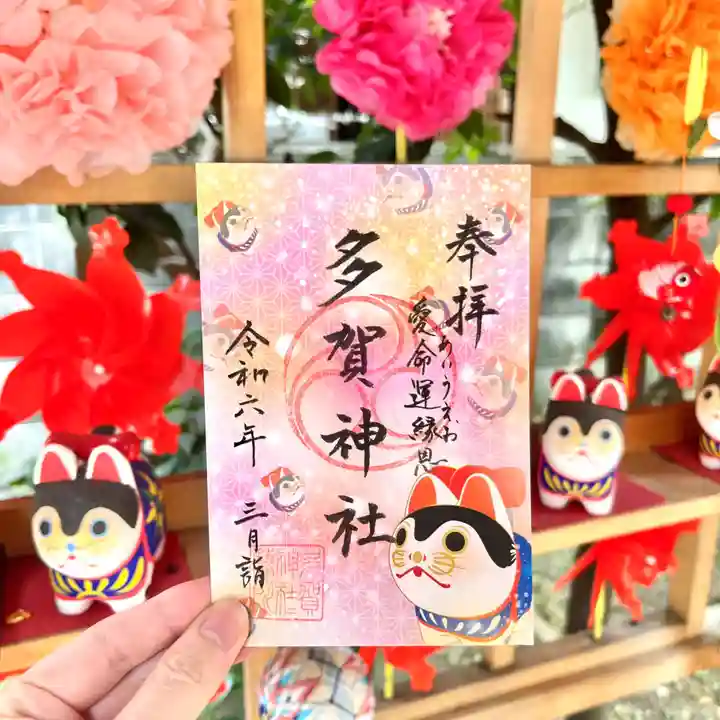 奉拝
あいうえお
愛命運縁恩
多賀神社
令和六年 三月詣
多賀神社